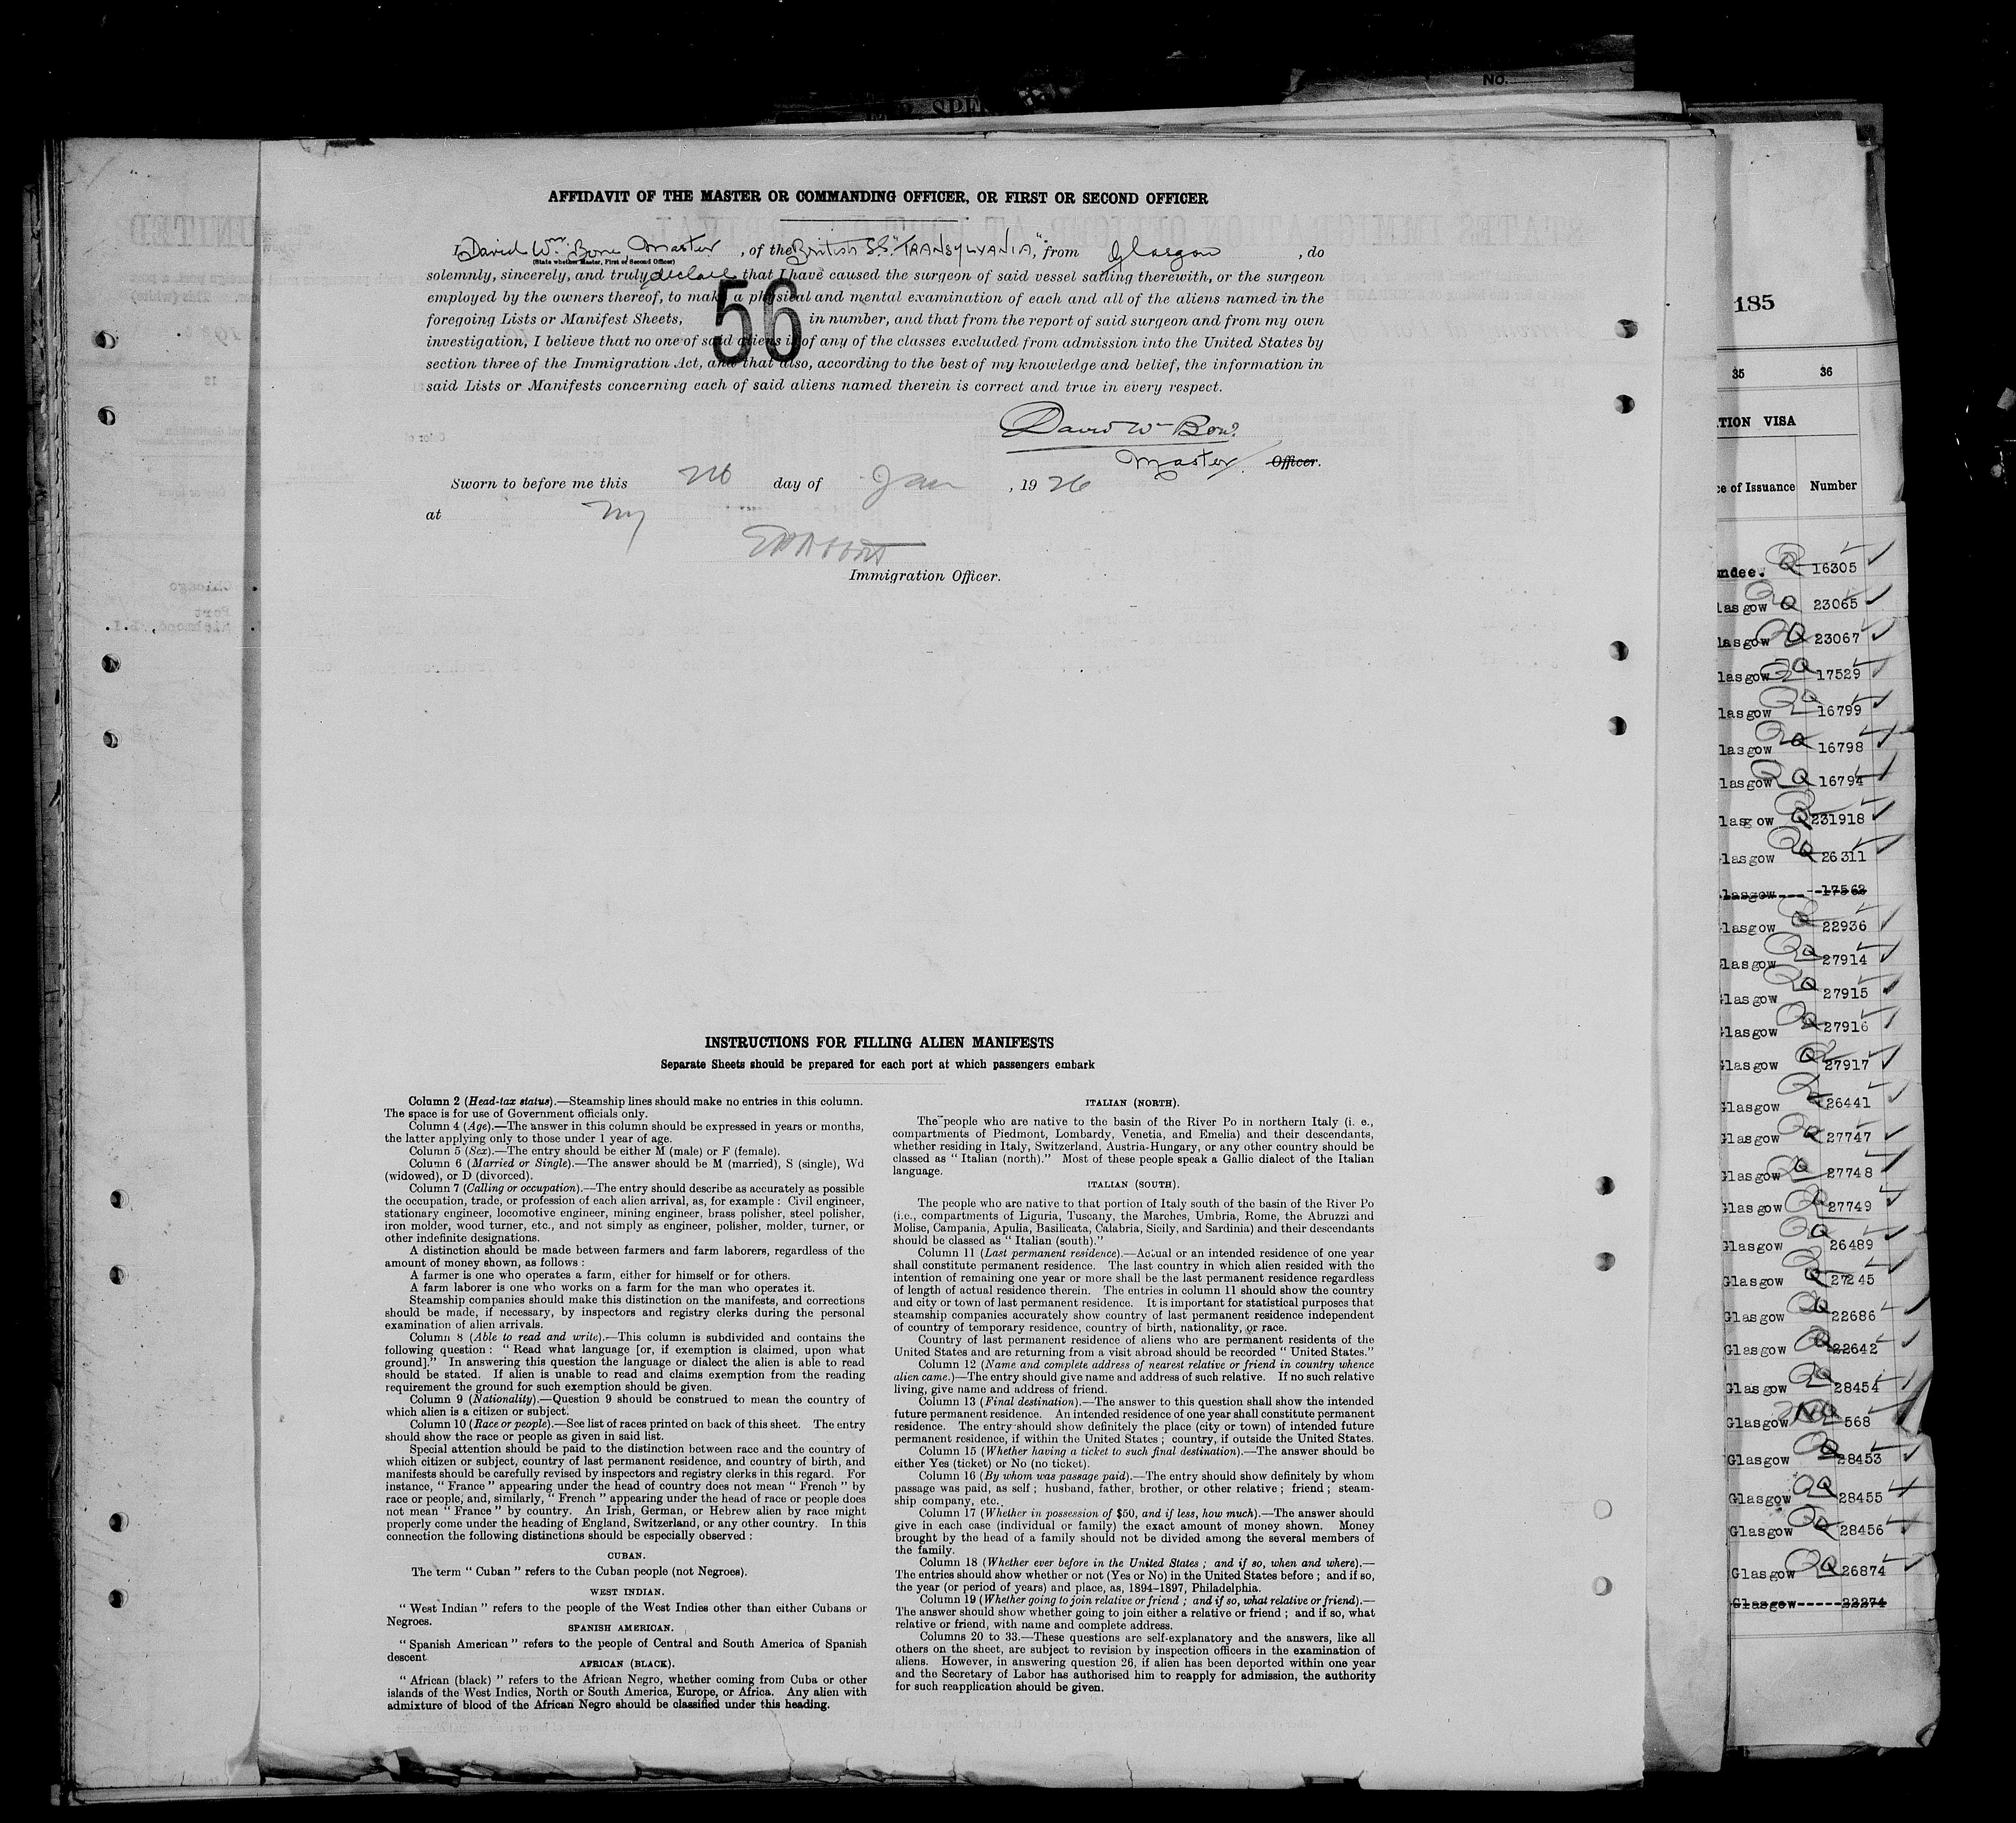 No.
AFFIDAVIT OF THE MASTER OR COMMANDING OFFICER, OR FIRST OR SECOND OFFICER
I, David Wm. Bone, Master, of the British S.S. "TRANSYLVANIA", from Glasgow, do
(State whether Master, First or Second Officer)
solemnly, sincerely, and truly declare that I have caused the surgeon of said vessel sailing therewith, or the surgeon
employed by the owners thereof, to make a physical and mental examination of each and all of the aliens named in the
foregoing Lists or Manifest Sheets, 56 in number, and that from the report of said surgeon and from my own
investigation, I believe that no one of said aliens is of any of the classes excluded from admission into the United States by
section three of the Immigration Act, and that also, according to the best of my knowledge and belief, the information in
said Lists or Manifests concerning each of said aliens named therein is correct and true in every respect.
David Wm Bone
Master. Officer.
Sworn to before me this day of Jan, 1926
at NY
Immigration Officer.
INSTRUCTIONS FOR FILLING ALIEN MANIFESTS
Separate Sheets should be prepared for each port at which passengers embark
Column 2 (Head-tax status).—Steamship lines should make no entries in this column.
The space is for use of Government officials only.
Column 4 (Age).—The answer in this column should be expressed in years or months,
the latter applying only to those under 1 year of age.
Column 5 (Sex).—The entry should be either M (male) or F (female).
Column 6 (Married or Single).—The answer should be M (married), S (single), Wd
(widowed), or D (divorced).
Column 7 (Calling or occupation).—The entry should describe as accurately as possible
the occupation, trade, or profession of each alien arrival, as, for example : Civil engineer,
stationary engineer, locomotive engineer, mining engineer, brass polisher, steel polisher,
iron molder, wood turner, etc., and not simply as engineer, polisher, molder, turner, or
other indefinite designations.
A distinction should be made between farmers and farm laborers, regardless of the
amount of money shown, as follows :
A farmer is one who operates a farm, either for himself or for others.
A farm laborer is one who works on a farm for the man who operates it.
Steamship companies should make this distinction on the manifests, and corrections
should be made, if necessary, by inspectors and registry clerks during the personal
examination of alien arrivals.
Column 8 (Able to read and write).—This column is subdivided and contains the
following question : " Read what language [or, if exemption is claimed, upon what
ground]." In answering this question the language or dialect the alien is able to read
should be stated. If alien is unable to read and claims exemption from the reading
requirement the ground for such exemption should be given.
Column 9 (Nationality).—Question 9 should be construed to mean the country of
which alien is a citizen or subject.
Column 10 (Race or people).—See list of races printed on back of this sheet. The entry
should show the race or people as given in said list.
Special attention should be paid to the distinction between race and the country of
which citizen or subject, country of last permanent residence, and country of birth, and
manifests should be carefully revised by inspectors and registry clerks in this regard. For
instance, " France " appearing under the head of country does not mean " French " by
race or people, and, similarly, " French " appearing under the head of race or people does
not mean " France " by country. An Irish, German, or Hebrew alien by race might
properly come under the heading of England, Switzerland, or any other country. In this
connection the following distinctions should be especially observed :
CUBAN.
The term " Cuban " refers to the Cuban people (not Negroes).
WEST INDIAN.
" West Indian " refers to the people of the West Indies other than either Cubans or
Negroes.
SPANISH AMERICAN.
" Spanish American " refers to the people of Central and South America of Spanish
descent
AFRICAN (BLACK).
" African (black) " refers to the African Negro, whether coming from Cuba or other
islands of the West Indies, North or South America, Europe, or Africa. Any alien with
admixture of blood of the African Negro should be classified under this heading.
ITALIAN (NORTH).
The people who are native to the basin of the River Po in northern Italy (i. e.,
compartments of Piedmont, Lombardy, Venetia, and Emelia) and their descendants,
whether residing in Italy, Switzerland, Austria-Hungary, or any other country should be
classed as " Italian (north)." Most of these people speak a Gallic dialect of the Italian
language.
ITALIAN (SOUTH).
The people who are native to that portion of Italy south of the basin of the River Po
(i.e., compartments of Liguria, Tuscany, the Marches, Umbria, Rome, the Abruzzi and
Molise, Campania, Apulia, Basilicata, Calabria, Sicily, and Sardinia) and their descendants
should be classed as " Italian (south)."
Column 11 (Last permanent residence).—Actual or an intended residence of one year
shall constitute permanent residence. The last country in which alien resided with the
intention of remaining one year or more shall be the last permanent residence regardless
of length of actual residence therein. The entries in column 11 should show the country
and city or town of last permanent residence. It is important for statistical purposes that
steamship companies accurately show country of last permanent residence independent
of country of temporary residence, country of birth, nationality, or race.
Country of last permanent residence of aliens who are permanent residents of the
United States and are returning from a visit abroad should be recorded " United States."
Column 12 (Name and complete address of nearest relative or friend in country whence
alien came.)—The entry should give name and address of such relative. If no such relative
living, give name and address of friend.
Column 13 (Final destination).—The answer to this question shall show the intended
future permanent residence. An intended residence of one year shall constitute permanent
residence. The entry should show definitely the place (city or town) of intended future
permanent residence, if within the United States ; country, if outside the United States.
Column 15 (Whether having a ticket to such final destination).—The answer should be
either Yes (ticket) or No (no ticket).
Column 16 (By whom was passage paid).—The entry should show definitely by whom
passage was paid, as self ; husband, father, brother, or other relative ; friend ; steam-
ship company, etc.
Column 17 (Whether in possession of $50, and if less, how much).—The answer should
give in each case (individual or family) the exact amount of money shown. Money
brought by the head of a family should not be divided among the several members of
the family.
Column 18 (Whether ever before in the United States ; and if so, when and where).—
The entries should show whether or not (Yes or No) in the United States before ; and if so,
the year (or period of years) and place, as, 1894–1897, Philadelphia.
Column 19 (Whether going to join relative or friend ; and if so, what relative or friend).—
The answer should show whether going to join either a relative or friend ; and if so, what
relative or friend, with name and complete address.
Columns 20 to 33.—These questions are self-explanatory and the answers, like all
others on the sheet, are subject to revision by inspection officers in the examination of
aliens. However, in answering question 26, if alien has been deported within one year
and the Secretary of Labor has authorised him to reapply for admission, the authority
for such reapplication should be given.
185
35 36
TION VISA
ce of Issuance Number
ndee. Q 16305
lasgow Q 23065
lasgow Q 23067
lasgow Q 17529
lasgow Q 16799
lasgow Q 16798
lasgow Q 16794
lasgow Q 231918
lasgow Q 26311
lasgow 17562
lasgow Q 22936
lasgow Q 27914
lasgow Q 27915
lasgow Q 27916
Glasgow Q 27917
Glasgow Q 26441
Glasgow Q 27747
Glasgow Q 27748
Glasgow Q 27749
Glasgow Q 26489
Glasgow Q 27245
Glasgow Q 22686
Glasgow Q 22642
Glasgow Q 28454
Glasgow NQ 568
Glasgow Q 28453
Glasgow Q 28455
Glasgow Q 28456
Glasgow Q 26874
Glasgow 22274